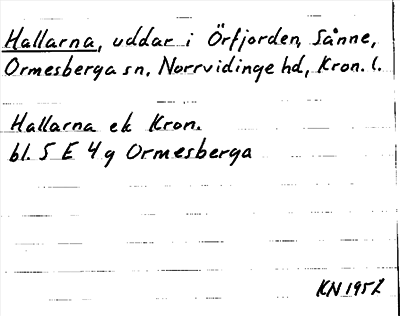 Hallarna, uddar i Örfjorden, Sånne,
Ormesberga sn. Norrvidinge hd, Kron. l.
Hallarna ek Kron.
bl. 5 E 4 g Ormesberga
KN 1957